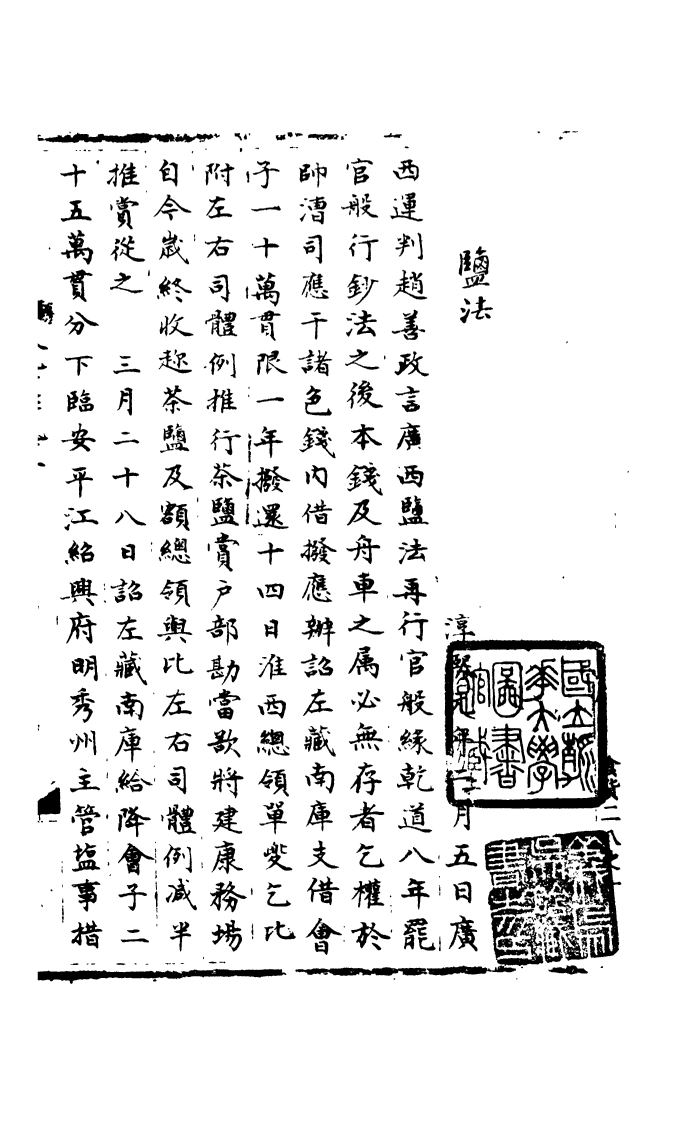 鹽法
淳熙 年 月五日廣
西運判趙善政言廣西鹽法再行官般緣乾道八年罷
官般行鈔法之後本錢及舟車之属必無存者乞權於
帥漕司應干諸色錢内借撥應辦詔左藏南庫支借會
子一十萬貫限一年撥還十四日淮西總領單夔乞比
附左右司體例推行茶鹽賞户部勘當欲將建康務場
自今歲終收趂茶鹽及額總領與比左右司體例减半
推賞從之　三月二十八日詔左藏南庫給降會子二
十五萬貫分下臨安平江紹興府明秀州主管塩事措
國立 華大學圖書館